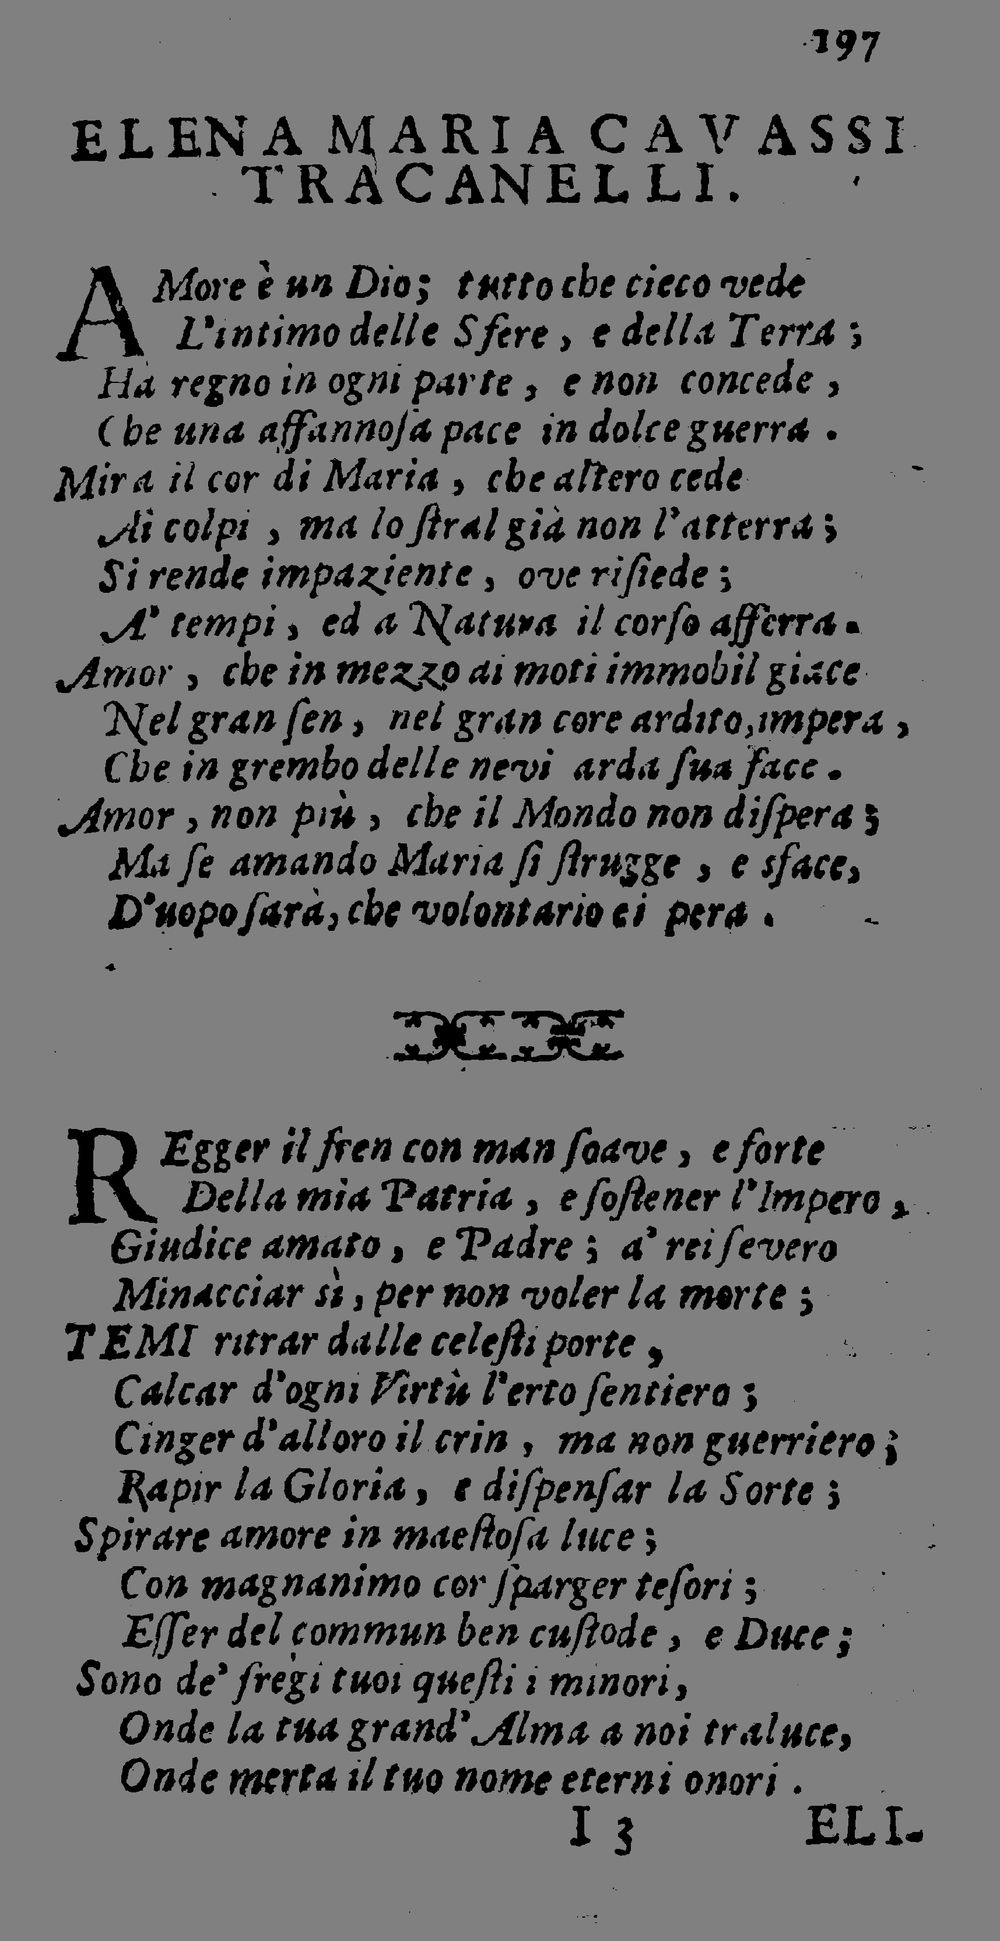 197
ELENA MARIA CAVASSI
TRACANELLI.
AMore è un Dio; tutto che cieco vede
L'intimo delle Sfere, e della Terra;
Ha regno in ogni parte, e non concede,
Che una affannoſa pace in dolce guerra.
Mira il cor di Maria, che altero cede
Ai colpi, ma lo ſtral già non l'atterra;
Si rende impaziente, ove riſiede;
A' tempi, ed a Natura il corſo afferra.
Amor, che in mezzo ai moti immobil giace
Nel gran ſen, nel gran core ardito, impera,
Che in grembo delle nevi arda ſua face.
Amor, non più, che il Mondo non diſpera;
Ma ſe amando Maria ſi ſtrugge, e sface,
D'uopo ſarà, che volontario ei pera.
REgger il fren con man ſoave, e forte
Della mia Patria, e ſoſtener l'Impero,
Giudice amato, e Padre; a' rei ſevero
Minacciar sì, per non voler la morte;
TEMI ritrar dalle celeſti porte,
Calcar d'ogni Virtù l'erto ſentiero;
Cinger d'alloro il crin, ma non guerriero;
Rapir la Gloria, e diſpenſar la Sorte;
Spirare amore in maeſtoſa luce;
Con magnanimo cor ſparger teſori;
Eſſer del commun ben cuſtode, e Duce;
Sono de' fregi tuoi queſti i minori,
Onde la tua grand' Alma a noi traluce,
Onde merta il tuo nome eterni onori.
I 3 ELI-